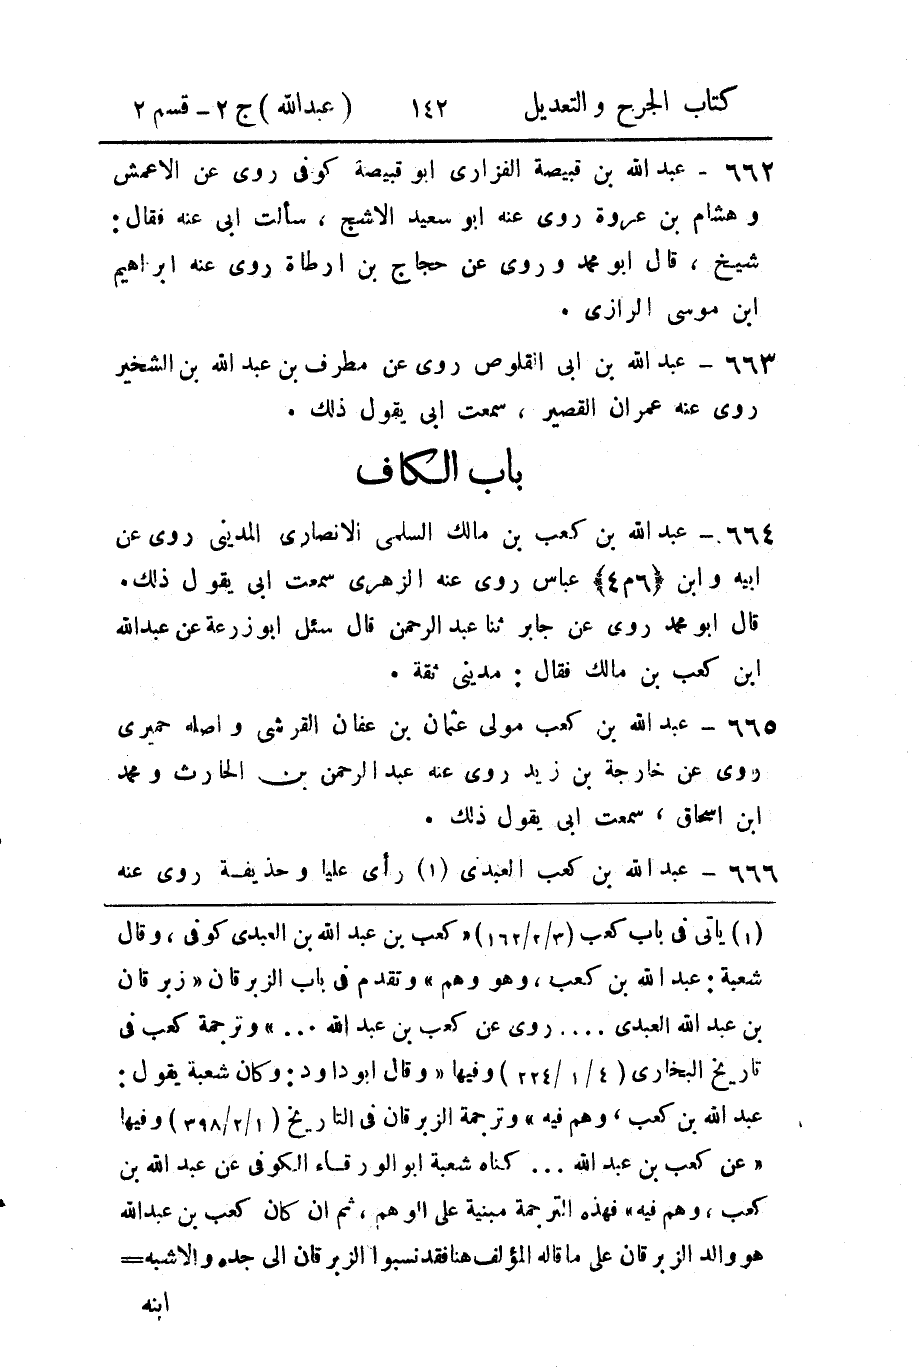 كتاب الجرح والتعديل ١٤٢ (عبدالله) ج ٢ - قسم ٢
٦٦٢ - عبد الله بن قبيصة الفزارى ابو قبيصة كوفى روى عن الاعمش
و هشام بن عروة روى عنه ابو سعيد الاشج ، سألت ابى عنه فقال :
شيخ ، قال ابو محمد و روى عن حجاج بن ارطاة روى عنه ابراهيم
ابن موسى الرازى .
٦٦٣ - عبد الله بن ابى القلوص روى عن مطرف بن عبد الله بن الشخير
روى عنه عمران القصير ، سمعت ابى يقول ذلك .
باب الكاف
٦٦٤ - عبد الله بن كعب بن مالك السلمى الانصارى المدينى روى عن
ابيه و ابن ﴿٦م٤﴾ عباس روى عنه الزهرى سمعت ابى يقول ذلك.
قال ابو محمد روى عن جابر ثنا عبد الرحمن قال سئل ابو زرعة عن عبدالله
ابن كعب بن مالك فقال : مدينى ثقة .
٦٦٥ - عبد الله بن كعب مولى عثمان بن عفان القرشى و اصله حميرى
روى عن خارجة بن زيد روى عنه عبد الرحمن بن الحارث و محمد
ابن اسحاق ، سمعت ابى يقول ذلك .
٦٦٦ - عبد الله بن كعب العبدى (١) رأى عليا و حذيفة روى عنه
(١) يأتى فى باب كعب (١٦٢/٢/٣) « كعب بن عبد الله بن العبدى كوفى ، و قال
شعبة : عبد الله بن كعب ، و هو وهم » و تقدم فى باب الزبرقان « زبرقان
بن عبد الله العبدى .... روى عن كعب بن عبد الله ... » و ترجمة كعب فى
تاريخ البخارى (٢٢٤/١/٤) و فيها « و قال ابو داود : و كان شعبة يقول :
عبد الله بن كعب ، و هم فيه » و ترجمة الزبرقان فى التاريخ (٣٩٨/٢/١) و فيها
« عن كعب بن عبد الله ... كناه شعبة ابو الورقاء الكوفى عن عبد الله بن
كعب ، و هم فيه » فهذه الترجمة مبنية على الوهم ، ثم ان كان كعب بن عبدالله
هو والد الزبرقان على ما قاله المؤلف هنا فقد نسبوا الزبرقان الى جده و الاشبه =
ابنه